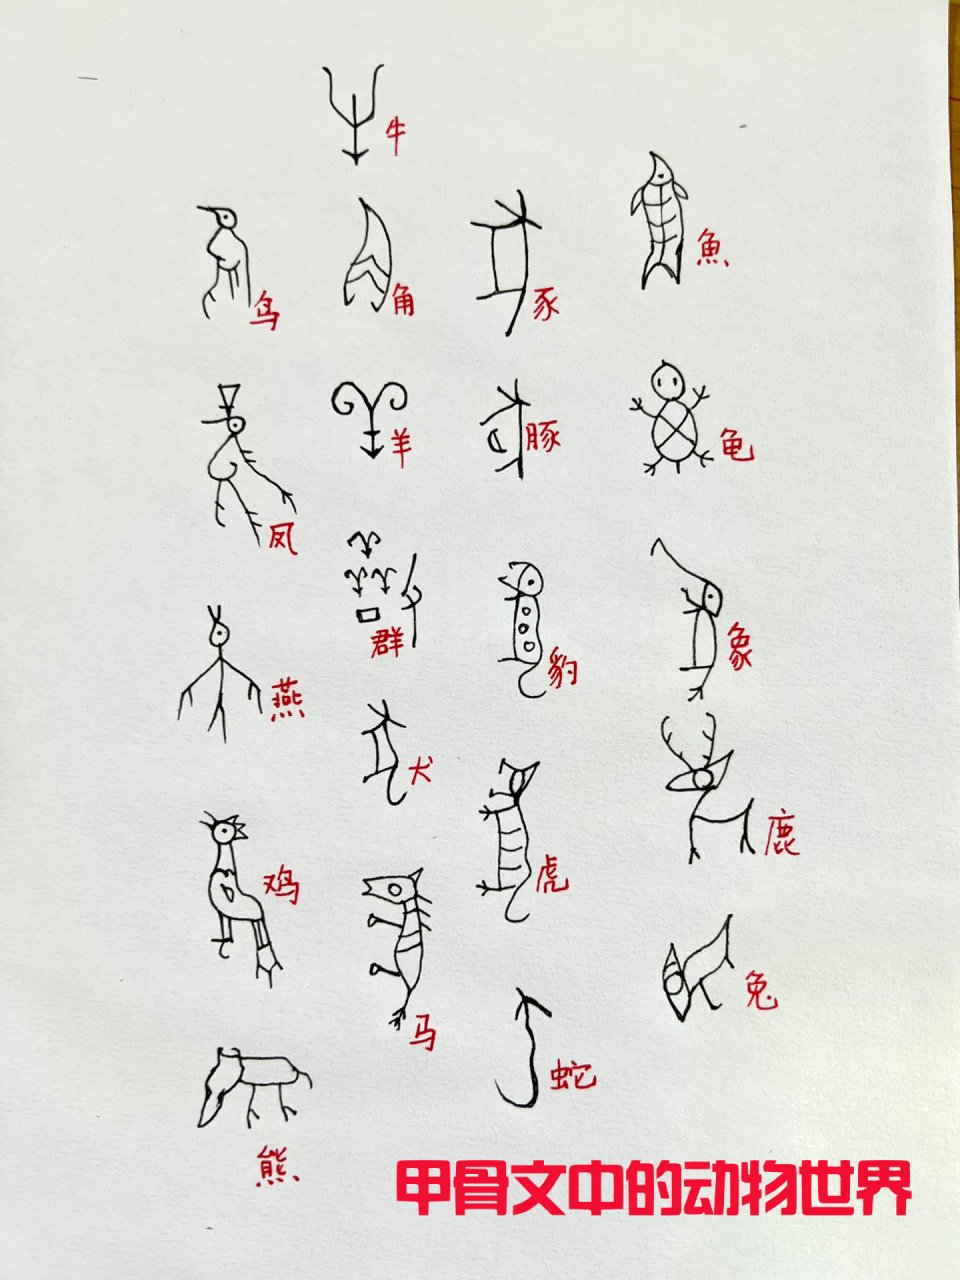 牛
鸟
角
豕
魚
凤
羊
豚
龟
燕
群
豹
象
犬
鸡
马
虎
鹿
熊
蛇
兔
甲骨文中的动物世界